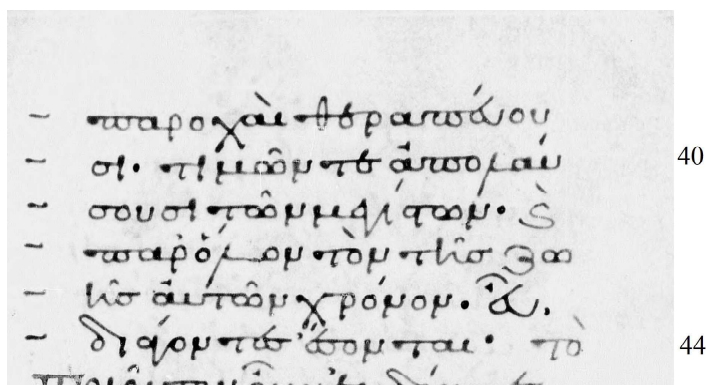 – παροχαὶ θεραπεύου
– σι· τιμῶν τε ἀπολαύ 40
– σουσι τῶν μεγίστων· ϗ̀
– παρ’ ὅλον τὸν τῆς ζω
– ῆς αὐτῶν χρόνον· εὖ
– διάγοντες ἔσονται· τὸ 44